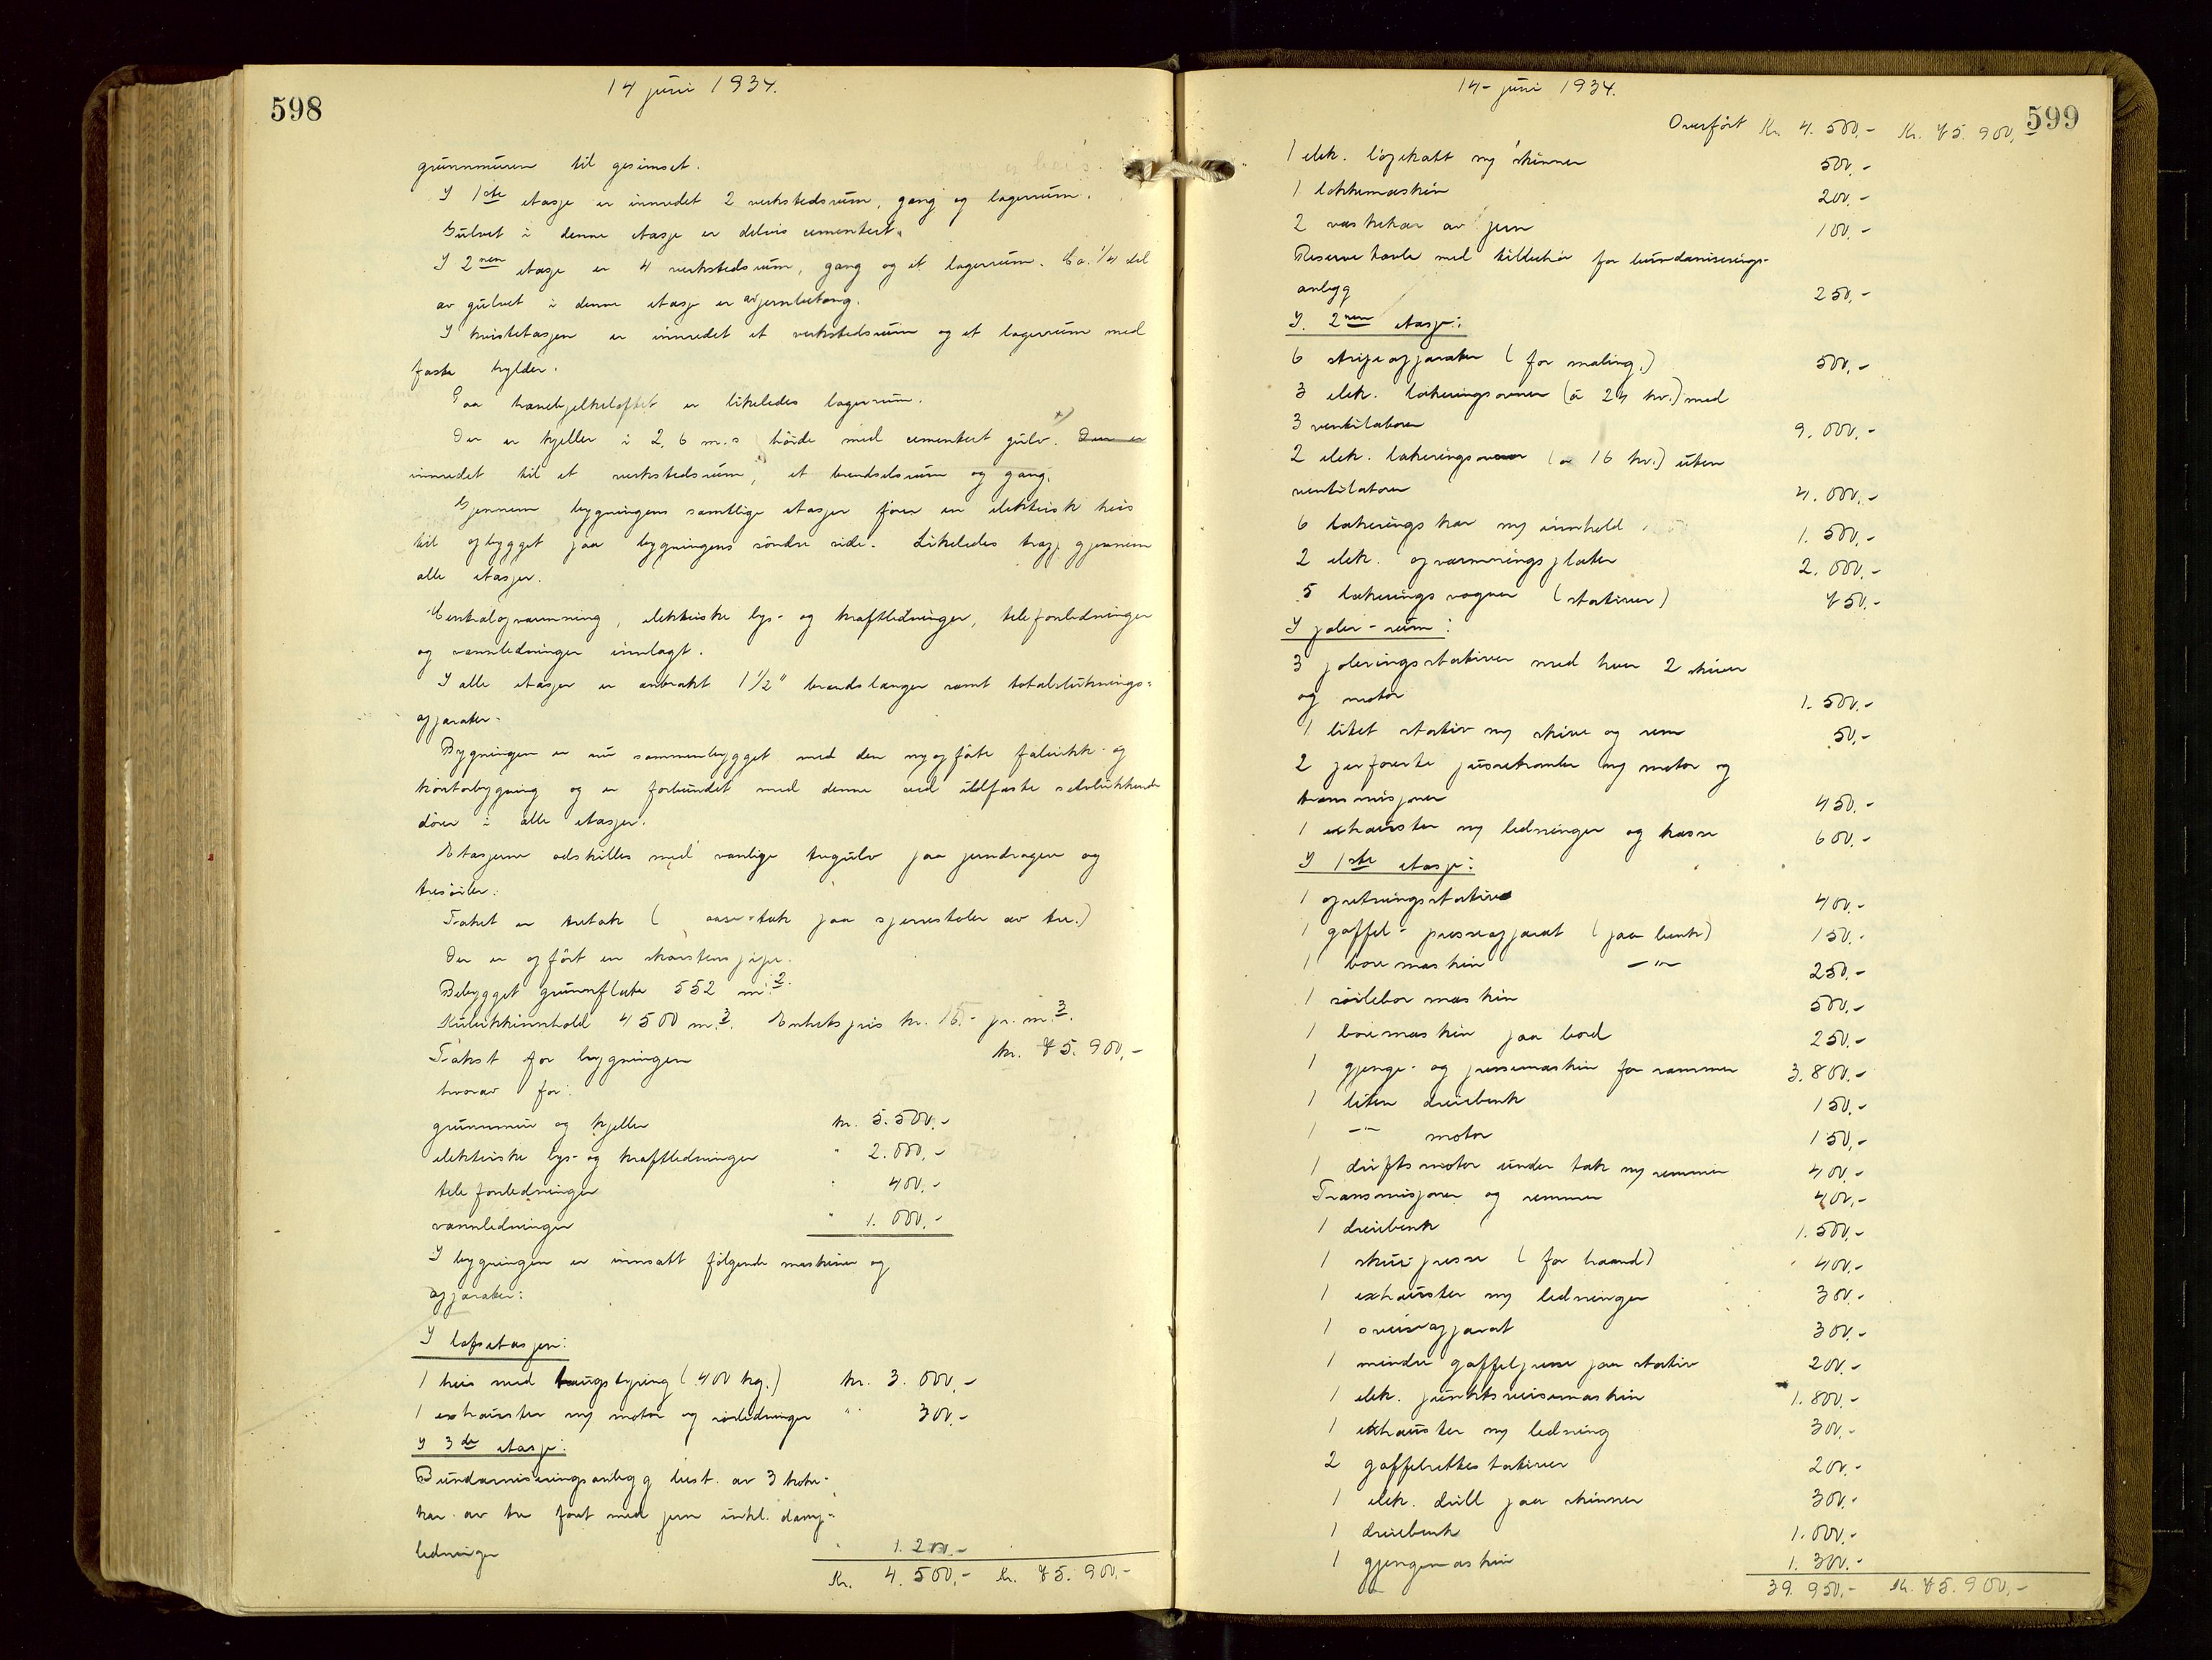 598
14 juni 1934.
grunnmuren til gesimset.
I 1ste etasje er innredet 2 verkstedsrum, gang og lagerrum.
Gulvet i denne etasje er delvis cementert.
I 2nen etasje er 4 verkstedsrum, gang og et lagerrum. Ca. 1/4 del
av gulvet i denne etasje er av jernbetong.
I kvistetasjen er innredet et verkstedsrum og et lagerrum med
faste hylder.
Paa hanebjelkeloftet er likeledes lagerrum.
Der er kjeller i 2,6 m.s höide med cementert gulv. Den er
innredet til et verkstedsrum, et brendselsrum og gang.
Gjennem bygningens samtlige etasjer förer en elektrisk heis
til opbygget paa bygningens söndre side. Likeledes trapp gjennem
alle etasjer.
Centralopvarmning, elektriske lys- og kraftledninger, telefonledninger
og vannledninger innlagt.
I alle etasjer er anbrakt 1 1/2" brandslanger samt totalsluknings-
apparater.
Bygningen er nu sammenbygget med den nyopförte fabrikk- og
kontorbygning og er forbundet med denne ved ildfaste selvlukkende
dörer i alle etasjer.
Etasjerne adskilles med vanlige tregulv paa jerndragere og
tresöiler.
Taket er tretak ( aase-tak paa sperrestoler av tre.)
Der er opfört en skorstenspipe.
Bebygget grunnflate 552 m.2.
Kubikkinnhold 4500 m.3. Enhetspris kr. 15.- pr. m.3.
Takst for bygningen kr. 75.900,-
hvorav for:
grunnmur og kjeller kr. 5.500,-
elektriske lys- og kraftledninger " 2.000,-
telefonledninger " 400,-
vannledninger " 1.000,-
I bygningen er innsatt fölgende maskiner og
apparater:
I loftsetasjen:
1 heis med taugstyring (400 kg.) kr. 3.000,-
1 exhauster m/ motor og rörledninger " 300,-
I 3de etasje:
Bundaniseringsanlegg best. av 3 koke-
kar av tre foret med jern inkl. damp-
ledninger " 1.200,-
Kr. 4.500,- kr. 75.900,-
599
14- juni 1934.
Overfört Kr. 4.500,- Kr. 75.900,
1 elek. löpekatt m/ skinner 500,-
1 lokkemaskin 200,-
2 vaskekar av jern 100,-
Reserve tavle med tilbehör for bundaniserings-
anlegg 250,-
I. 2nen etasje:
6 stripeapparater (for maling.) 500,-
3 elek. lakeringsovner (á 24 kv.) med
3 ventilatorer 9.000,-
2 elek. lakeringsovner (a 16 kv.) uten
ventilatorer 4.000,-
6 lakeringskar m/ innhold 1.500,-
2 elek. opvarmningsplater 2.000,-
5 lakeringsvogner (stativer) 750,-
I poler-rum:
3 poleringsstativer med hver 2 skiver
og motor 1.500,-
1 litet stativ m/ skive og rem 50,-
2 perforerte pussetromler m/ motor og
transmisjoner 450,-
1 exhauster m/ ledninger og kasse 600,-
I 1ste etasje:
1 opretningsstativ 400,-
1 gaffel-presseapparat (paa benk) 150,-
1 boremaskin -"- 250,-
1 söilebormaskin 500,-
1 boremaskin paa bord 250,-
1 gjenge- og pressemaskin for rammer 3.800,-
1 liten dreiebenk 150,-
1 -"- motor 150,-
1 driftsmotor under tak m/ remmer 400,-
Transmisjoner og remmer 400,-
1 dreiebenk 1.500,-
1 skruepresse (for haand) 400,-
1 exhauster m/ ledninger 300,-
1 sveiseapparat 300,-
1 mindre gaffelpresse paa stativ 200,-
1 elek. punktsveisemaskin 1.800,-
1 exhauster m/ ledning 300,-
2 gaffelrettestativer 200,-
1 elek. drill paa skinner 300,-
1 dreiebenk 1.000,-
1 gjengemaskin 1.300,-
39.950,- Kr. 75.900,-